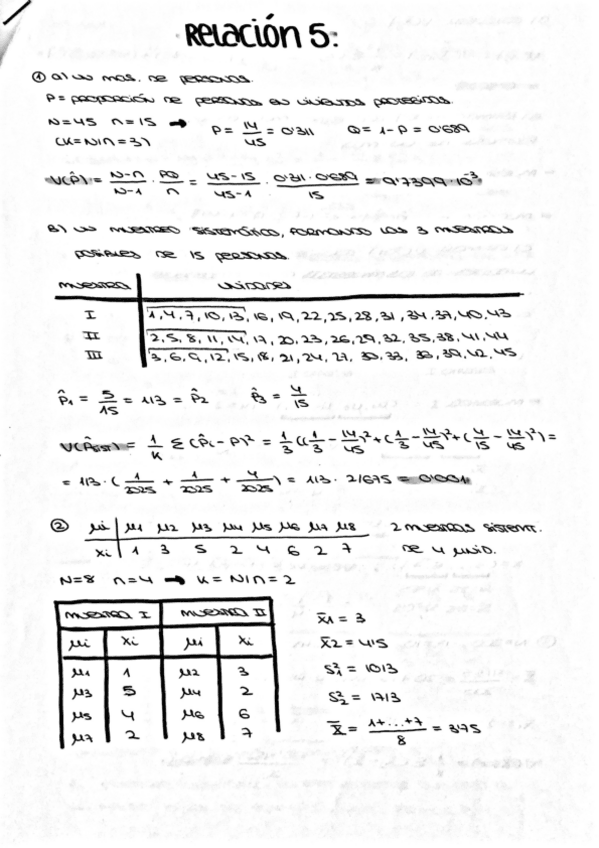 Relación 5:
① a) un mas. de personas.
P = proporción de personas en viviendas protegidas.
N=45 n=15 → P = 14/45 = 0'311 Q = 1-P = 0'689
(K=N/n=3)
V(P̂) = N-n/N-1 · PQ/n = 45-15/45-1 · 0'311·0'689/15 = 9'7399·10⁻³
B) un muestreo sistemático, formando las 3 muestras
posibles de 15 personas.
muestra unidades
I 1,4,7,10,13,16,19,22,25,28,31,34,37,40,43
II 2,5,8,11,14,17,20,23,26,29,32,35,38,41,44
III 3,6,9,12,15,18,21,24,27,30,33,36,39,42,45
P̂1 = 5/15 = 1/3 = P̂2 P̂3 = 4/15
V(P̂sist) = 1/K Σ(P̂i-P)² = 1/3((1/3 - 14/45)²+(1/3 - 14/45)²+(4/15 - 14/45)²) =
= 1/3·(1/2025 + 1/2025 + 4/2025) = 1/3 · 2/675 = 0'001
② μi μ1 μ2 μ3 μ4 μ5 μ6 μ7 μ8 2 muestras sistem.
xi 1 3 5 2 4 6 2 7 de 4 unid.
N=8 n=4 → K = N/n = 2
muestra I muestra II
μi xi μi xi
μ1 1 μ2 3
μ3 5 μ4 2
μ5 4 μ6 6
μ7 2 μ8 7
x̄1 = 3
x̄2 = 4'5
S²1 = 10/3
S²2 = 17/3
X̄ = 1+...+7/8 = 3'75